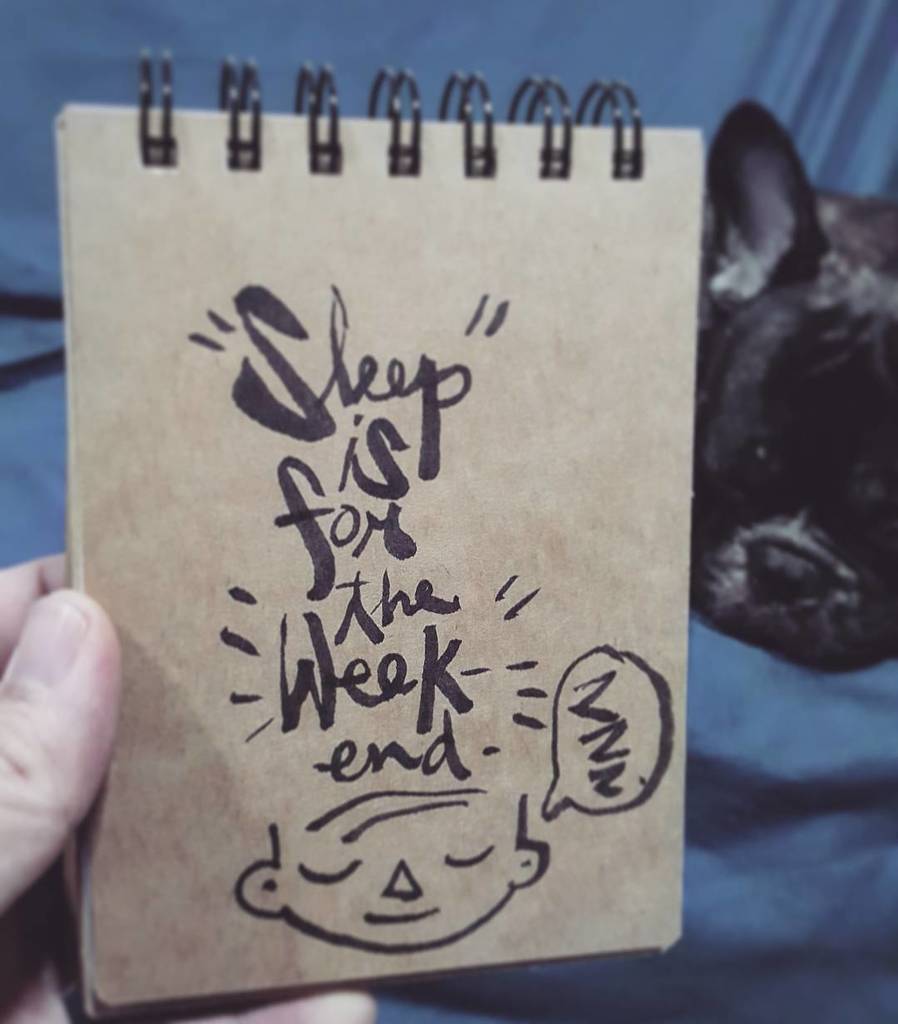 "Sleep"
is
for
the
Week-
end.
ZZZZ